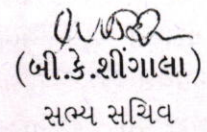 (બી.કે.શીંગાલા)
સભ્ય સચિવ